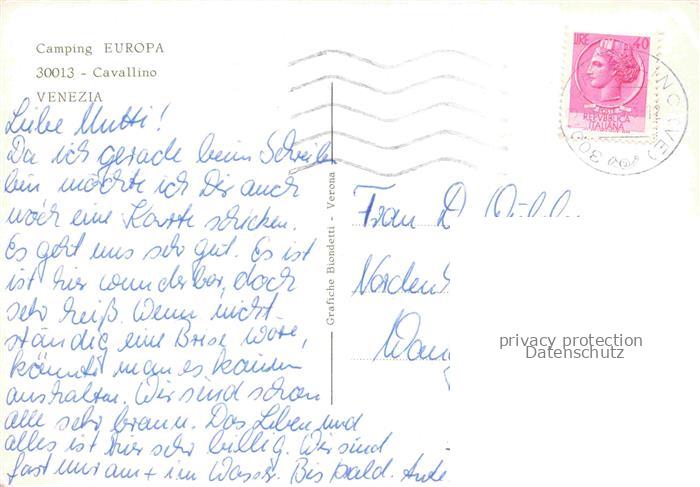 Camping EUROPA
30013 - Cavallino
VENEZIA
Liebe Mutti!
Da ich gerade beim Schreiben
bin möchte ich Dir auch
noch eine Karte schicken.
Es geht uns sehr gut. Es ist
ist hier wunderbar, doch
sehr heiß. Wenn nicht
ständig eine Brise wäre,
könnte man es kaum
aushalten. Wir sind schon
alle sehr braun. Das Leben und
alles ist hier sehr billig. Wir sind
fast nur am + im Wasser. Bis bald.
Grafiche Biondetti - Verona
LIRE 40
POSTE
REPVBBLICA
ITALIANA
Frau D
privacy protection
Datenschutz